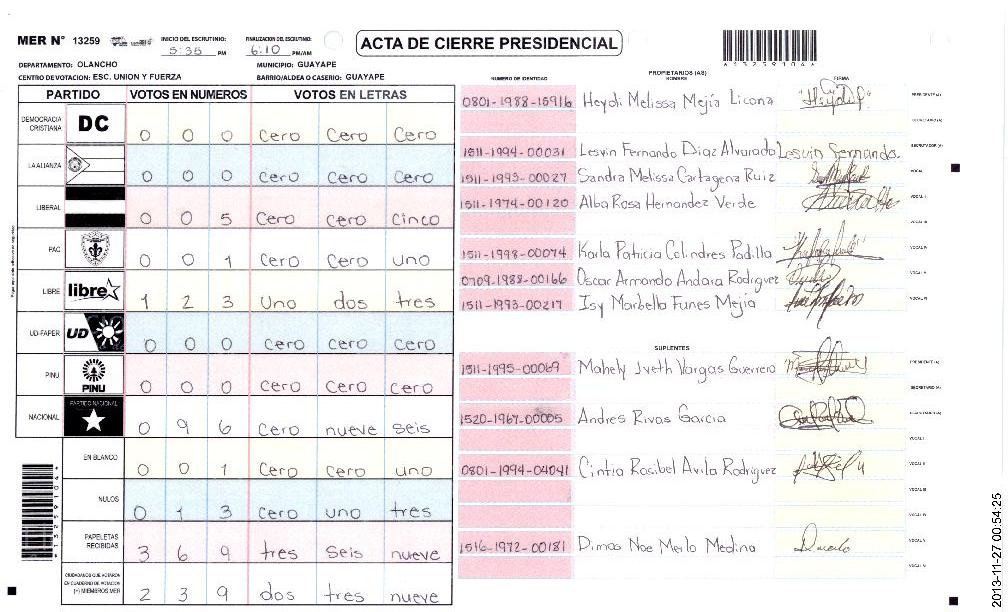 MER N° 13259
INICIO DEL ESCRUTINIO: 5:35 PM
FINALIZACION DEL ESCRUTINIO: 6:10 PM/AM
ACTA DE CIERRE PRESIDENCIAL
DEPARTAMENTO: OLANCHO
MUNICIPIO: GUAYAPE
CENTRO DE VOTACION: ESC. UNION Y FUERZA
BARRIO/ALDEA O CASERIO: GUAYAPE
PARTIDO VOTOS EN NUMEROS VOTOS EN LETRAS
DEMOCRACIA CRISTIANA DC 0 0 0 Cero Cero Cero
LA ALIANZA 0 0 0 Cero Cero Cero
LIBERAL 0 0 5 Cero Cero Cinco
PAC 0 0 1 Cero Cero uno
LIBRE libre 1 2 3 Uno dos tres
UD-FAPER UD 0 0 0 Cero Cero Cero
PINU PINU 0 0 0 Cero Cero Cero
NACIONAL PARTIDO NACIONAL 0 9 6 Cero nueve seis
EN BLANCO 0 0 1 Cero Cero uno
NULOS 0 1 3 Cero uno tres
PAPELETAS RECIBIDAS 3 6 9 tres seis nueve
CIUDADANOS QUE VOTARON EN CUADERNO DE VOTACION (+) MIEMBROS MER 2 3 9 dos tres nueve
NUMERO DE IDENTIDAD PROPIETARIOS (AS) NOMBRE FIRMA
0801-1988-15916 Heydi Melissa Mejía Licona PRESIDENTE (A)
SECRETARIO (A)
1511-1994-00031 Lesvin Fernando Diaz Alvarado Lesvin Fernando ESCRUTADOR (A)
1511-1993-00027 Sandra Melissa Cartagena Ruiz VOCAL I
1511-1974-00120 Alba Rosa Hernandez Verde VOCAL II
VOCAL III
1511-1998-00074 Karla Patricia Colindres Padilla VOCAL IV
0709-1988-00166 Oscar Armando Andara Rodriguez VOCAL V
1511-1993-00217 Isy Maribella Funes Mejía VOCAL VI
SUPLENTES
1511-1995-00069 Mahely Jveth Vargas Guerrero PRESIDENTE (A)
SECRETARIO (A)
1520-1967-00005 Andres Rivas Garcia ESCRUTADOR (A)
VOCAL I
0801-1994-04041 Cintia Rosibel Avila Rodriguez VOCAL II
VOCAL III
VOCAL IV
1516-1972-00181 Dimas Noe Merlo Medina VOCAL V
VOCAL VI
2013-11-27 00:54:25